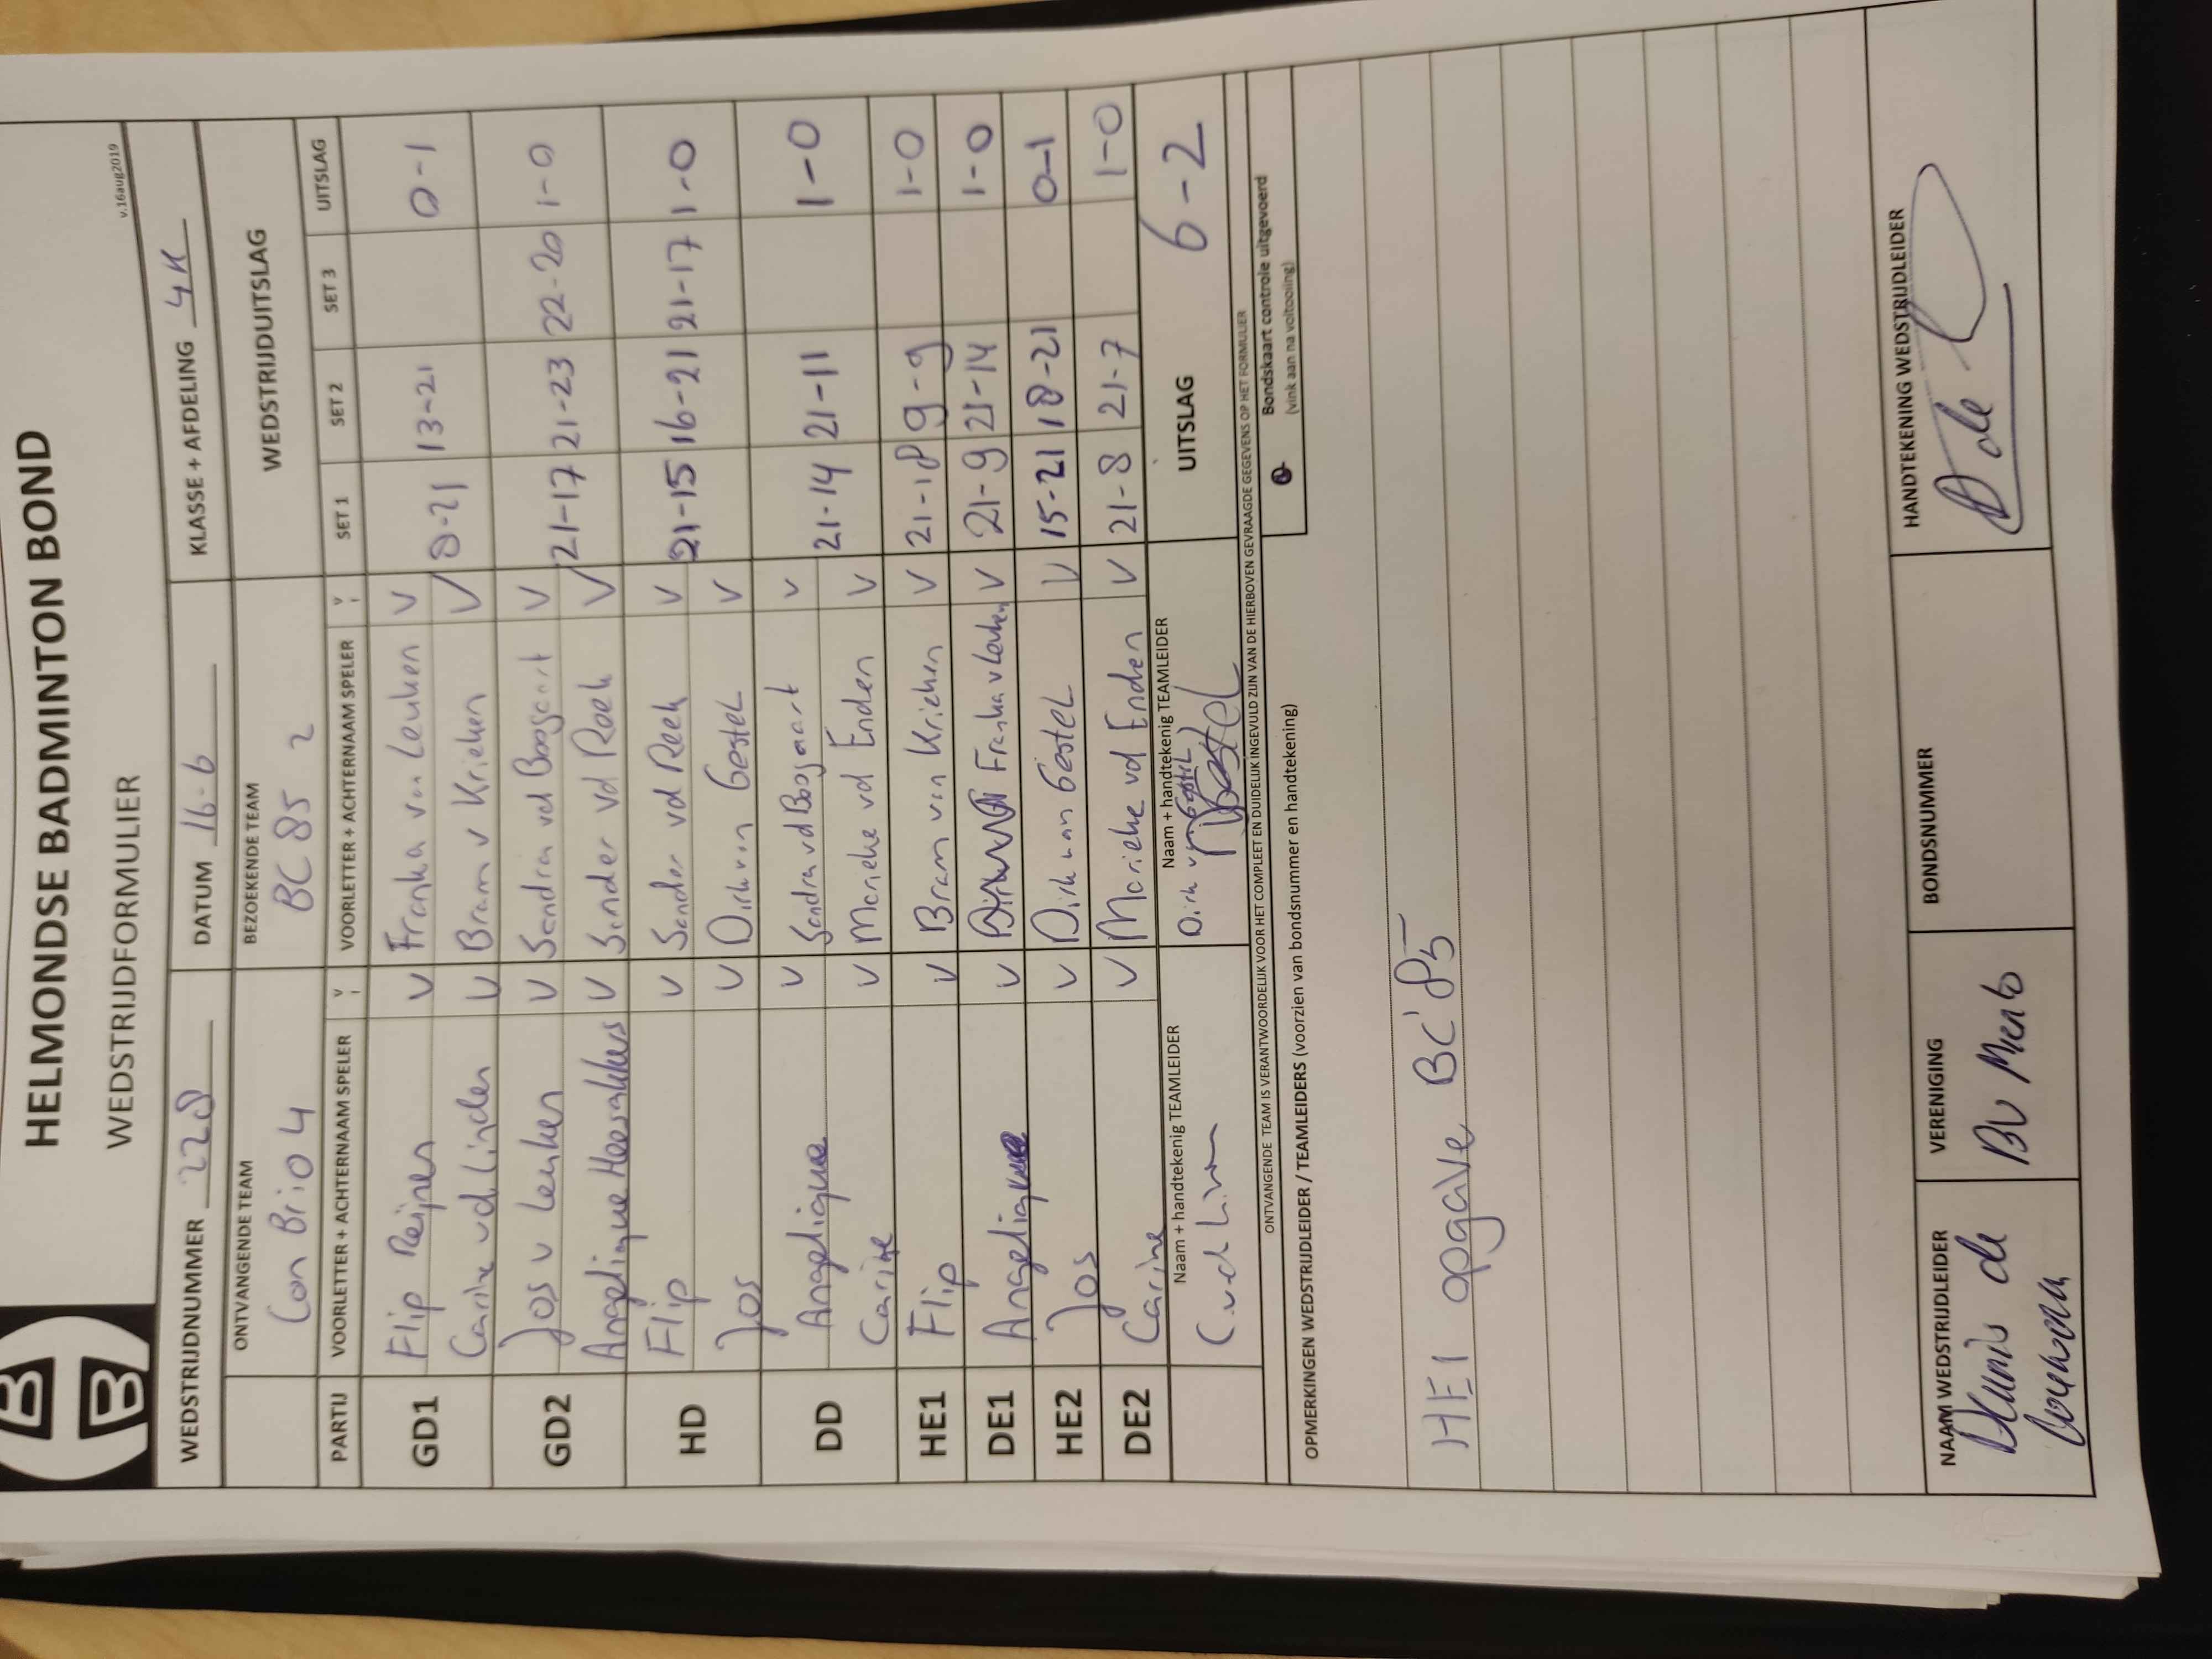 HELMONDSE BADMINTON BOND
WEDSTRIJDFORMULIER
v.16aug2019
WEDSTRIJDNUMMER 228 DATUM 16-6 KLASSE + AFDELING 4K
ONTVANGENDE TEAM BEZOEKENDE TEAM WEDSTRIJDUITSLAG
Con Brio 4 BC 85 2
PARTIJ VOORLETTER + ACHTERNAAM SPELER V VOORLETTER + ACHTERNAAM SPELER V SET 1 SET 2 SET 3 UITSLAG
GD1 Flip Reijnen V Franka van Leuken V 8-21 13-21 0-1
Carine vd Linden V Bram v Krieken V
GD2 Jos v Leuken V Sandra vd Boogaart V 21-17 21-23 22-20 1-0
Angelique Heesakkers V Sander vd Reek V
HD Flip V Sander vd Reek V 21-15 16-21 21-17 1-0
Jos V Dirk van Gestel V
DD Angelique V Sandra vd Boogaart V 21-14 21-11 1-0
Carine V Marieke vd Einden V
HE1 Flip V Bram van Krieken V 21-18 9-9 1-0
DE1 Angelique V Franka v Leuken V 21-9 21-14 1-0
HE2 Jos V Dirk van Gestel V 15-21 18-21 0-1
DE2 Carine V Marieke vd Einden V 21-8 21-7 1-0
Naam + handtekenig TEAMLEIDER Naam + handtekenig TEAMLEIDER UITSLAG 6-2
C vd Linden Dirk v Gestel
ONTVANGENDE TEAM IS VERANTWOORDELIJK VOOR HET COMPLEET EN DUIDELIJK INGEVULD ZIJN VAN DE HIERBOVEN GEVRAAGDE GEGEVENS OP HET FORMULIER
OPMERKINGEN WEDSTRIJDLEIDER / TEAMLEIDERS (voorzien van bondsnummer en handtekening)
Bondskaart controle uitgevoerd
(vink aan na voltooiing)
HE1 opgave BC'85
NAAM WEDSTRIJDLEIDER VERENIGING BONDSNUMMER HANDTEKENING WEDSTRIJDLEIDER
Dennis de BV Mento